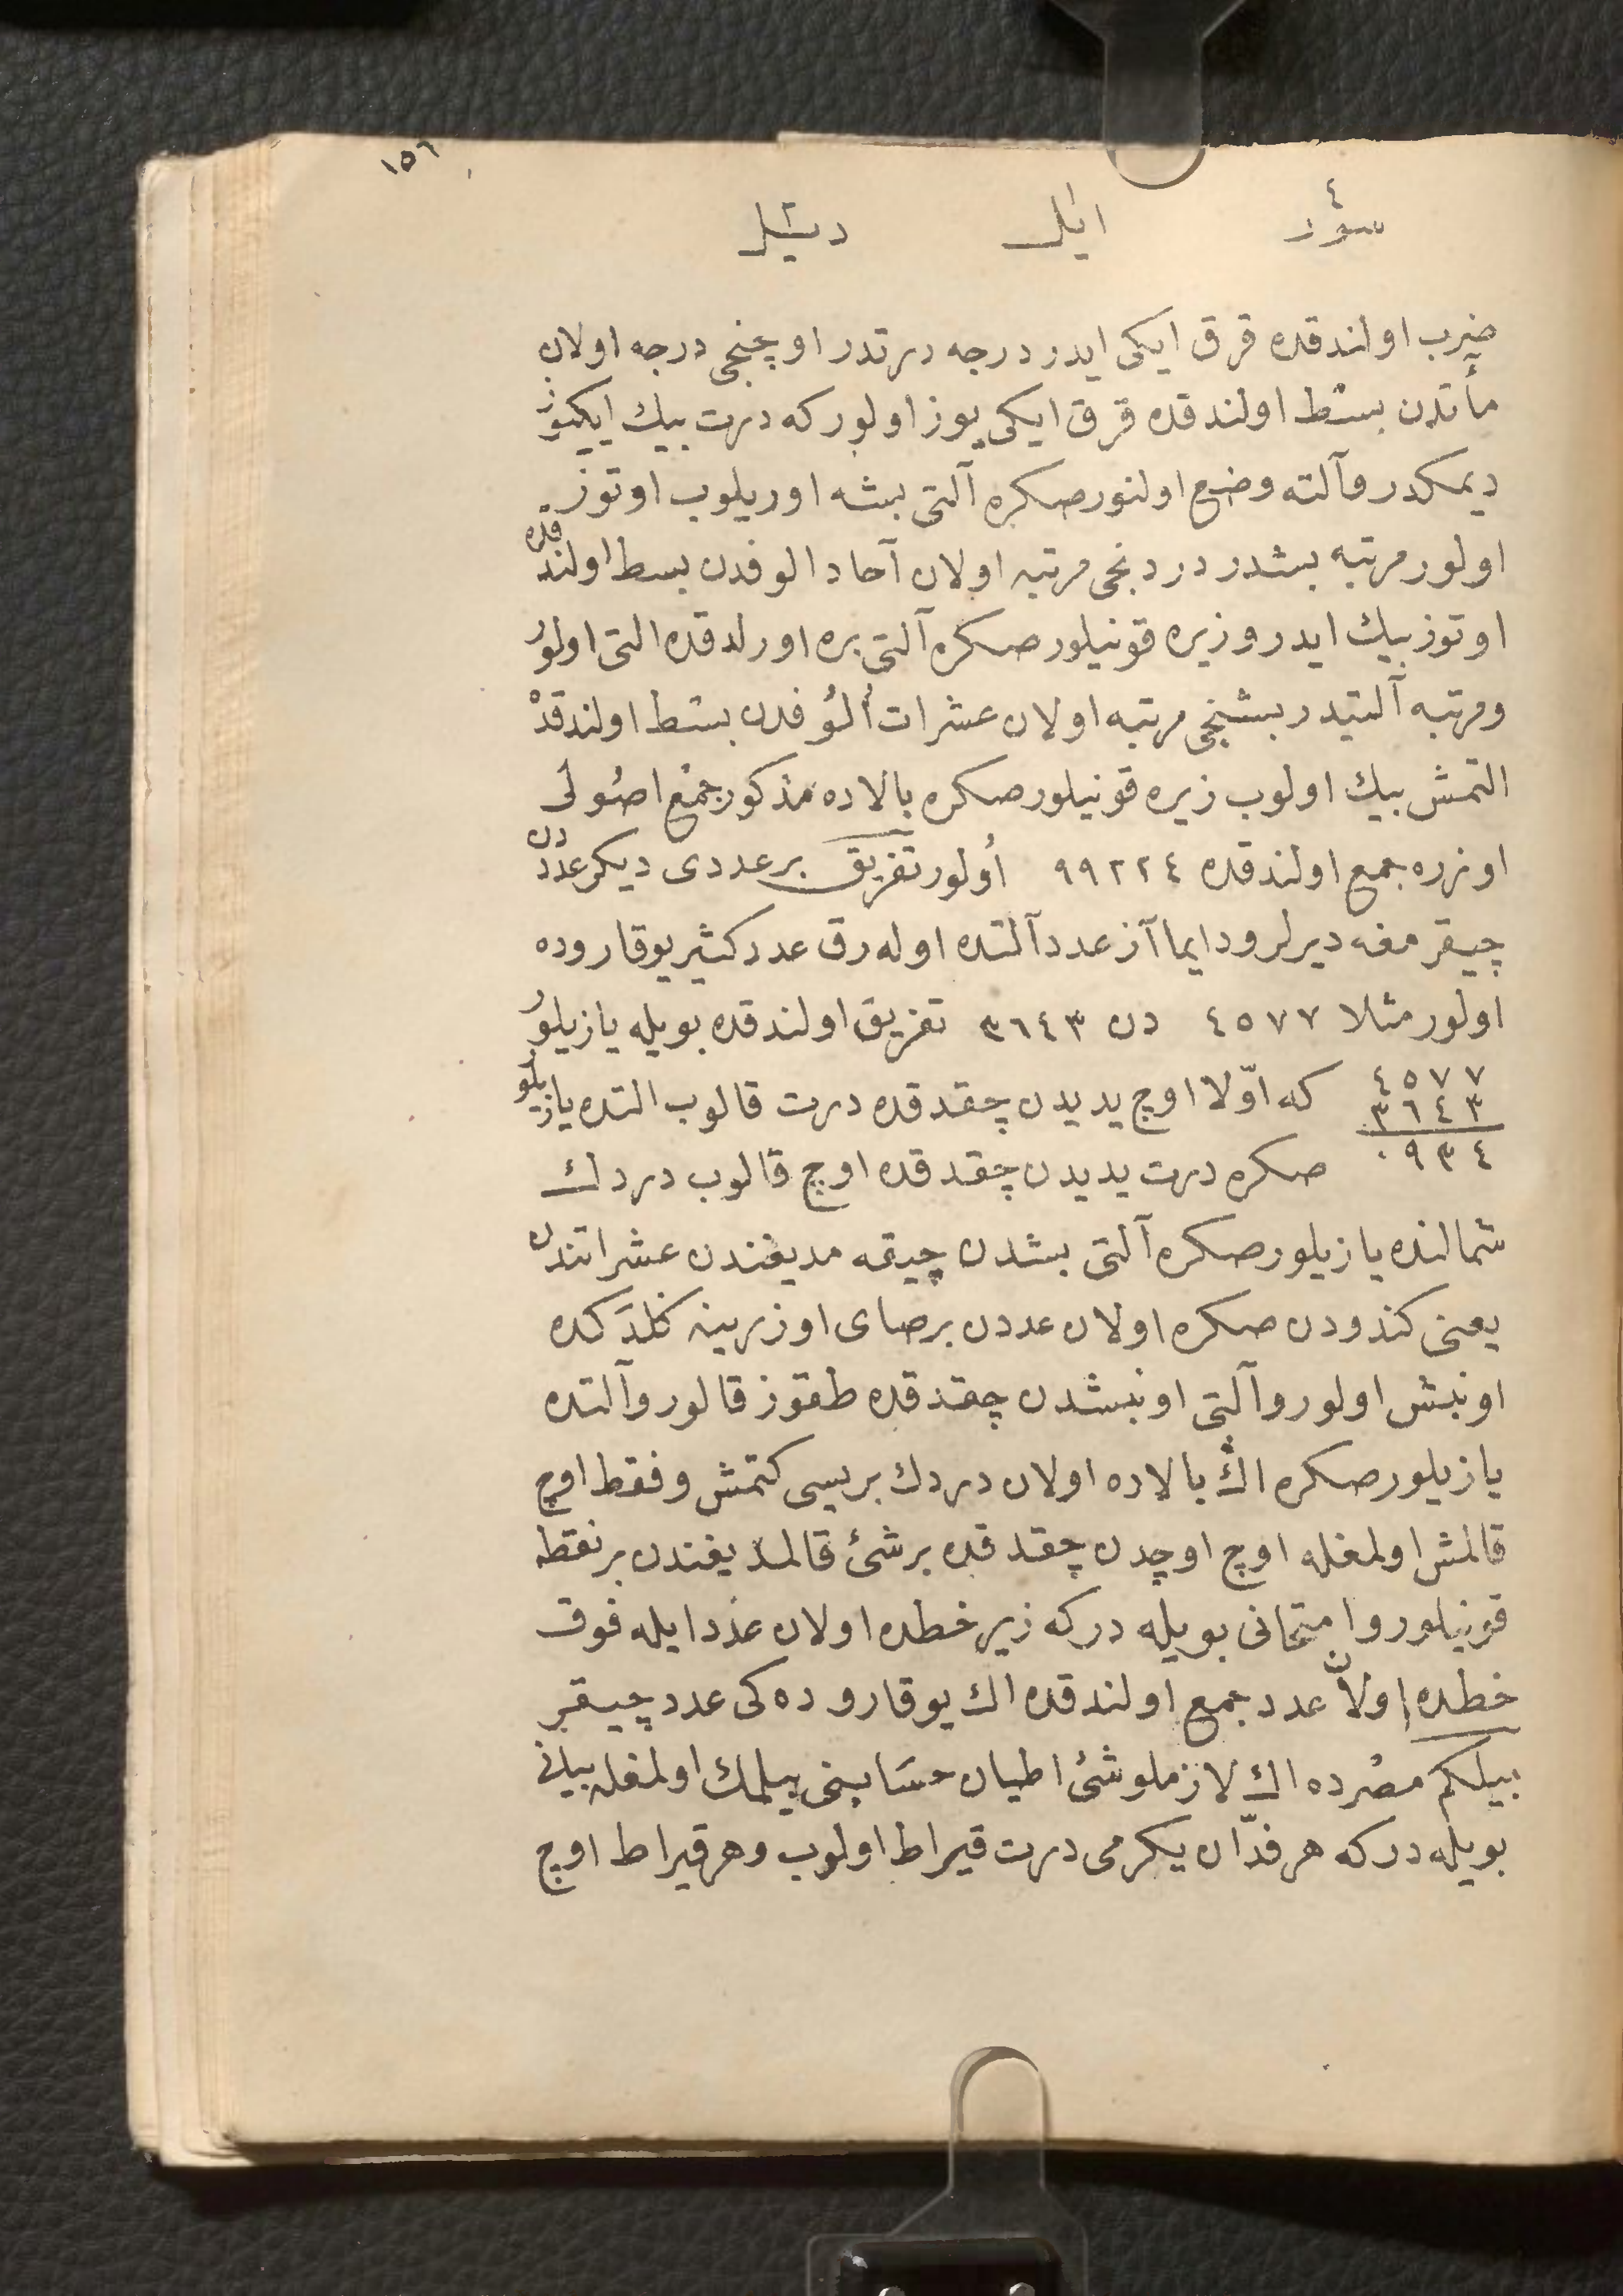 ١٥٦
٤
سوز ايلر ديگر
ضرب اولندقده قرق ايكى ايدر درجه درتدر اوچنجى درجه اولان
مأتدن بسط اولندقده قرق ايكى يوز اولور كه درت بيك ايكيوز
ديمكدر وآلته وضع اولنور صكره آلتى بشه اوريلوب اوتوز
اولور مرتبه بشدر دردنجى مرتبه اولان آحاد الوفدن بسط اولندقده
اوتوز بيك ايدر وزيره قونيلور صكره آلتى بره اورلدقده التى اولور
ومرتبه آلتيدر بشنجى مرتبه اولان عشرات اُلُوفدن بسط اولندقدْ
التمش بيك اولوب زيره قونيلور صكره بالاده مذكور جمْع اصُولى
اوزره جمع اولندقده ٩٩٢٢٤ اُولور تفريق بر عددى ديكر عدددن
چيقرمغه ديرلر ودايما آز عدد آلتده اوله رق عدد كثير يوقاروده
اولور مثلا ٤٥٧٧ دن ٣٦٤٣ تفريق اولندقده بويله يازيلور
٤٥٧٧ كه اوّلا اوچ يديدن چقدقده درت قالوب التده يازيلو
٣٦٤٣
٠٩٣٤ صكره درت يديدن چقدقده اوچ قالوب دردك
شمالنده يازيلور صكره آلتى بشدن چيقه مديغندن عشراتندن
يعنى كندودن صكره اولان عددن بر صاى اوزرينه كلدَكده
اونبش اولور وآلتى اونبشدن چقدقده طقوز قالور وآلتده
يازيلور صكره اڭ بالاده اولان دردك بريسى كتمش وفقط اوچ
قالمش اولمغله اوچ اوچدن چقدقده بر شئ قالمديغندن بر نقطه
قونيلور وامتحانى بويله در كه زير خطده اولان عدد ايله فوق
خطده اولاّن عدد جمع اولندقده اك يوقاروده كى عدد چيقر
بيلكم مصْرده اك لازملو شئ اطيان حسَابنى بيلمك اولمغله بيانى
بويله در كه هر فدّان يكرمى درت قيراط اولوب وهر قيراط اوچ